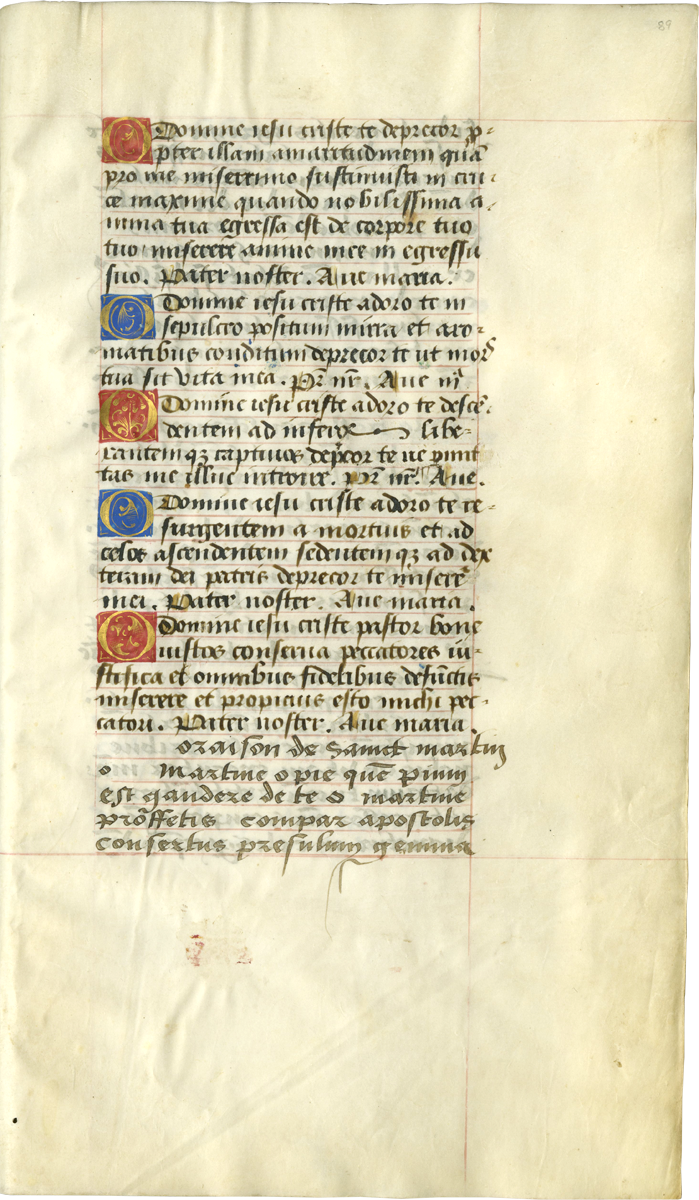 89
O Domine iesu criste te deprecor p̱-
pter illam amaritudinem quā
pro me miserrimo sustinuisti in cru-
ce maxime quando nobilissima a-
nima tua egressa est de corpore tuo
tuo miserere anime mee in egressu
suo. Pater noster. Aue maria.
O Domine iesu criste adoro te in
sepulcro positum mirra et aro-
matibus conditum deprecor te ut mors
tua sit vita mea. Pr̄ nr̄. Aue mͣ
O Domine iesu criste adoro te descē-
dentem ad inferos libe-
rantemqꝫ captiuos dep̄cor te ne
tas me illuc introire. Pr̄ nr̄. Aue.
O Domine iesu criste adoro te re-
surgentem a mortuis et ad
celos ascendentem sedentemqꝫ ad dex
teram dei patris deprecor te miserē
mei. Pater noster. Aue maria.
O Domine iesu criste pastor bone
iustos conserua peccatores iu-
stifica et omnibus fidelibus defūctis
miserere et propicius esto michi pec-
catori. Pater noster. Aue maria.
oraison de sainct martin
o martine o pie quē pium
est gaudere de te o martine
prōffetis compar apostolis
consertus presulum gemma